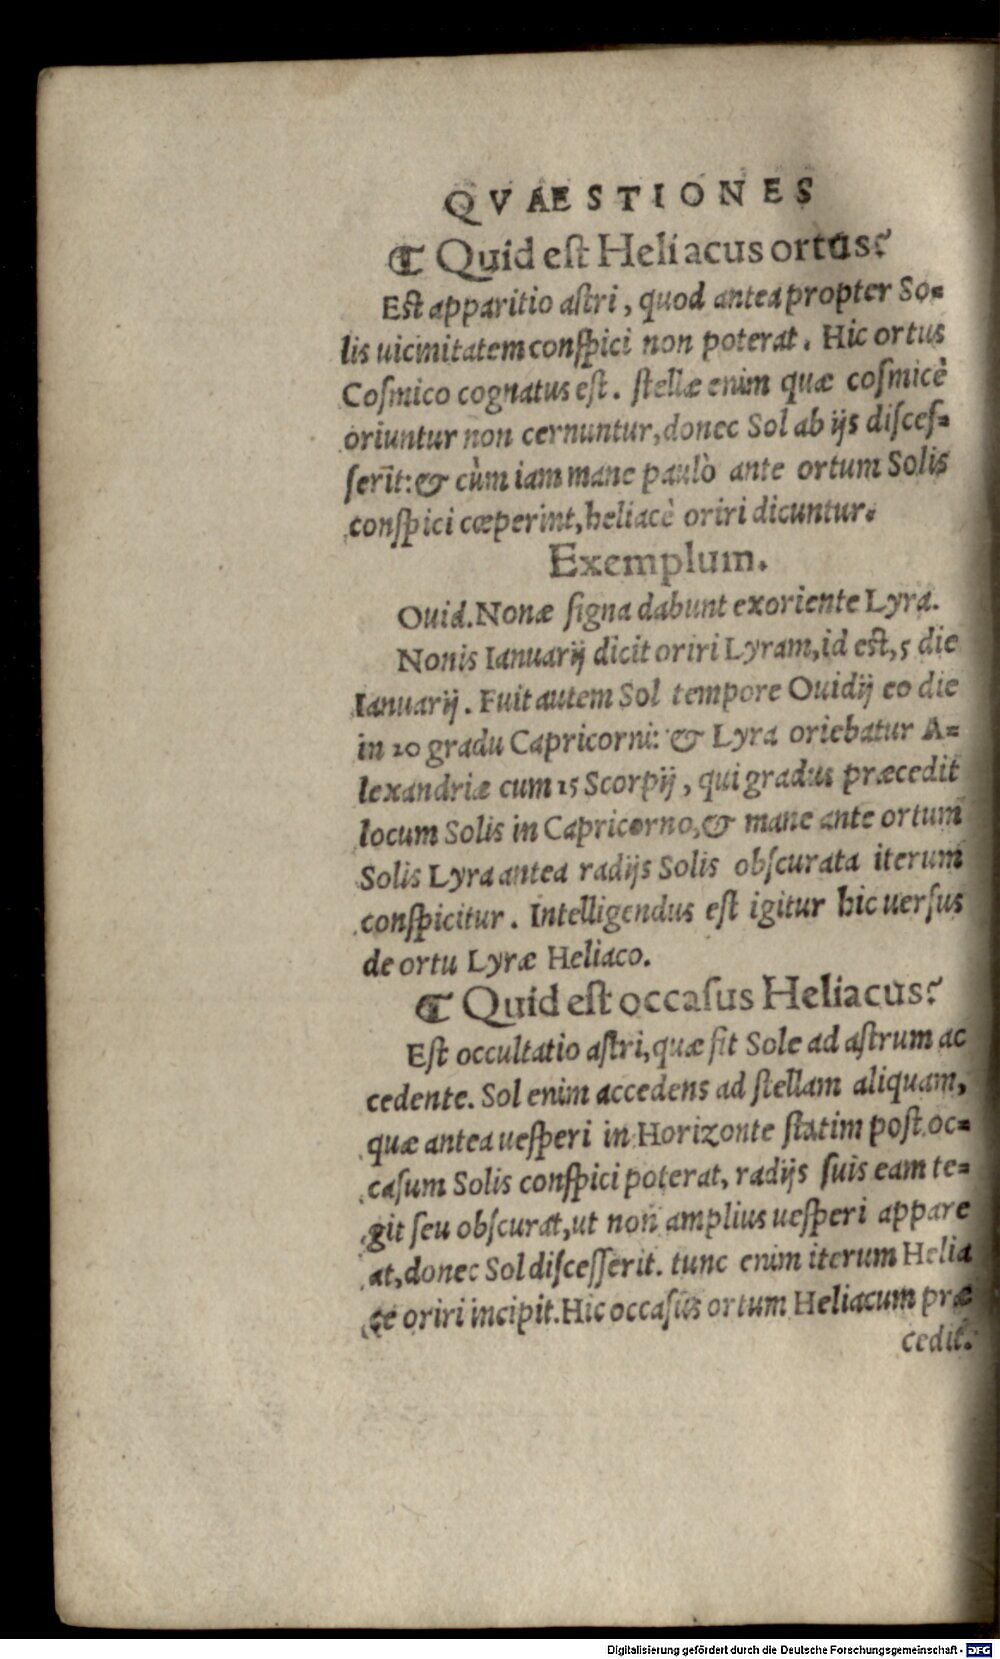 QVAESTIONES
¶ Quid eſt Heliacus ortus?
Eſt apparitio aſtri, quod antea propter So=
lis uicinitatem conſpici non poterat. Hic ortus
Coſmico cognatus eſt. ſtellæ enim quæ coſmicè
oriuntur non cernuntur, donec Sol ab ijs diſceſ=
ſerīt: & cùm iam mane paulò ante ortum Solis
conſpici cœperint, heliacè oriri dicuntur.
Exemplum.
Ouid. Nonæ ſigna dabunt exoriente Lyra.
Nonis Ianuarij dicit oriri Lyram, id eſt, 5 die
Ianuarij. Fuit autem Sol tempore Ouidij eo die
in 20 gradu Capricorni: & Lyra oriebatur A=
lexandriæ cum 15 Scorpij, qui gradus præcedit
locum Solis in Capricorno, & mane ante ortum
Solis Lyra antea radijs Solis obſcurata iterum
conſpicitur. Intelligendus eſt igitur hic uerſus
de ortu Lyræ Heliaco.
¶ Quid eſt occaſus Heliacus?
Eſt occultatio aſtri, quæ fit Sole ad aſtrum ac
cedente. Sol enim accedens ad ſtellam aliquam,
quæ antea ueſperi in Horizonte ſtatim poſt oc=
caſum Solis conſpici poterat, radijs ſuis eam te=
git ſeu obſcurat, ut non amplius ueſperi appare
at, donec Sol diſceſſerit. tunc enim iterum Helia
ce oriri incipit. Hic occaſus ortum Heliacum præ
cedit.
Digitalisierung gefördert durch die Deutsche Forschungsgemeinschaft - DFG